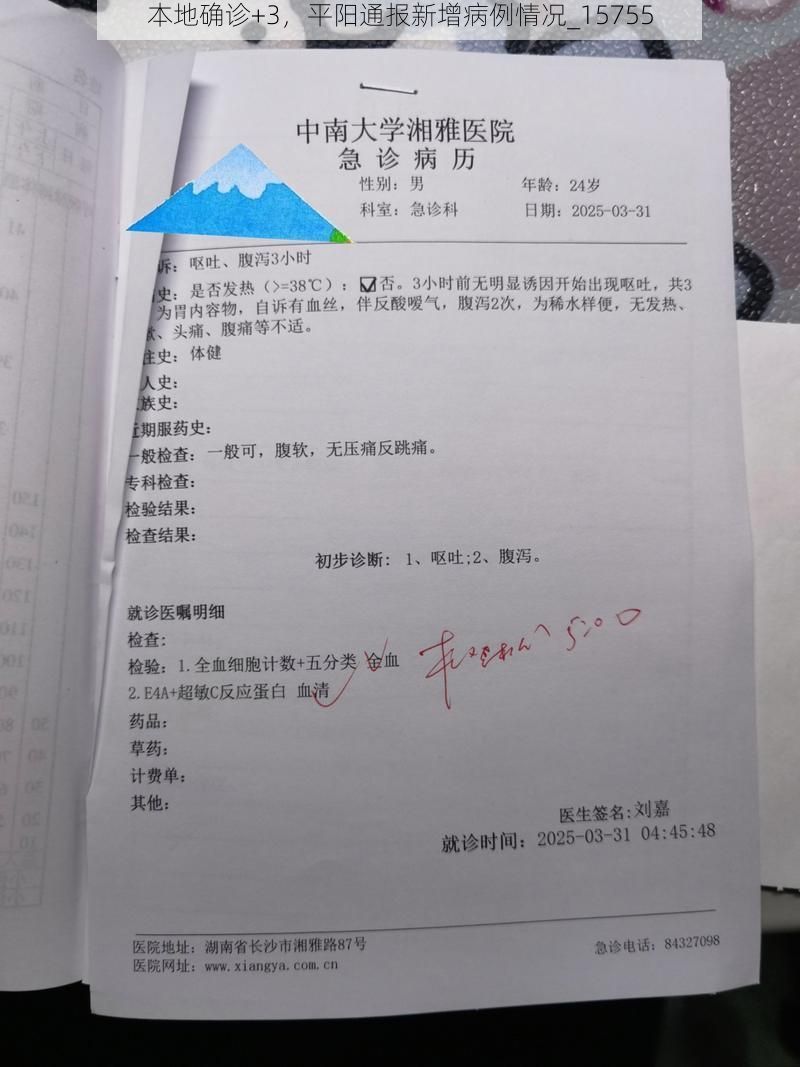 本地确诊+3，平阳通报新增病例情况_15755
中南大学湘雅医院
急诊病历
性别：男 年龄：24岁
科室：急诊科 日期：2025-03-31
诉：呕吐、腹泻3小时
史：是否发热（>=38℃）：☑否。3小时前无明显诱因开始出现呕吐，共3
为胃内容物，自诉有血丝，伴反酸嗳气，腹泻2次，为稀水样便，无发热、
、头痛、腹痛等不适。
往史：体健
人史：
族史：
近期服药史：
一般检查：一般可，腹软，无压痛反跳痛。
专科检查：
检验结果：
检查结果：
初步诊断： 1、呕吐;2、腹泻。
就诊医嘱明细
检查：
检验：1.全血细胞计数+五分类 全血
2.E4A+超敏C反应蛋白 血清
药品：
草药：
计费单：
其他：
医生签名:刘嘉
就诊时间：2025-03-31 04:45:48
医院地址：湖南省长沙市湘雅路87号 急诊电话：84327098
医院网址：www.xiangya.com.cn